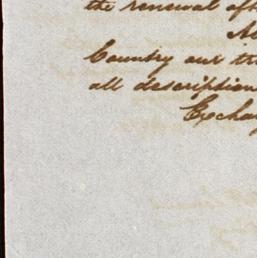 the renewal of
Country our
all description
Exchan